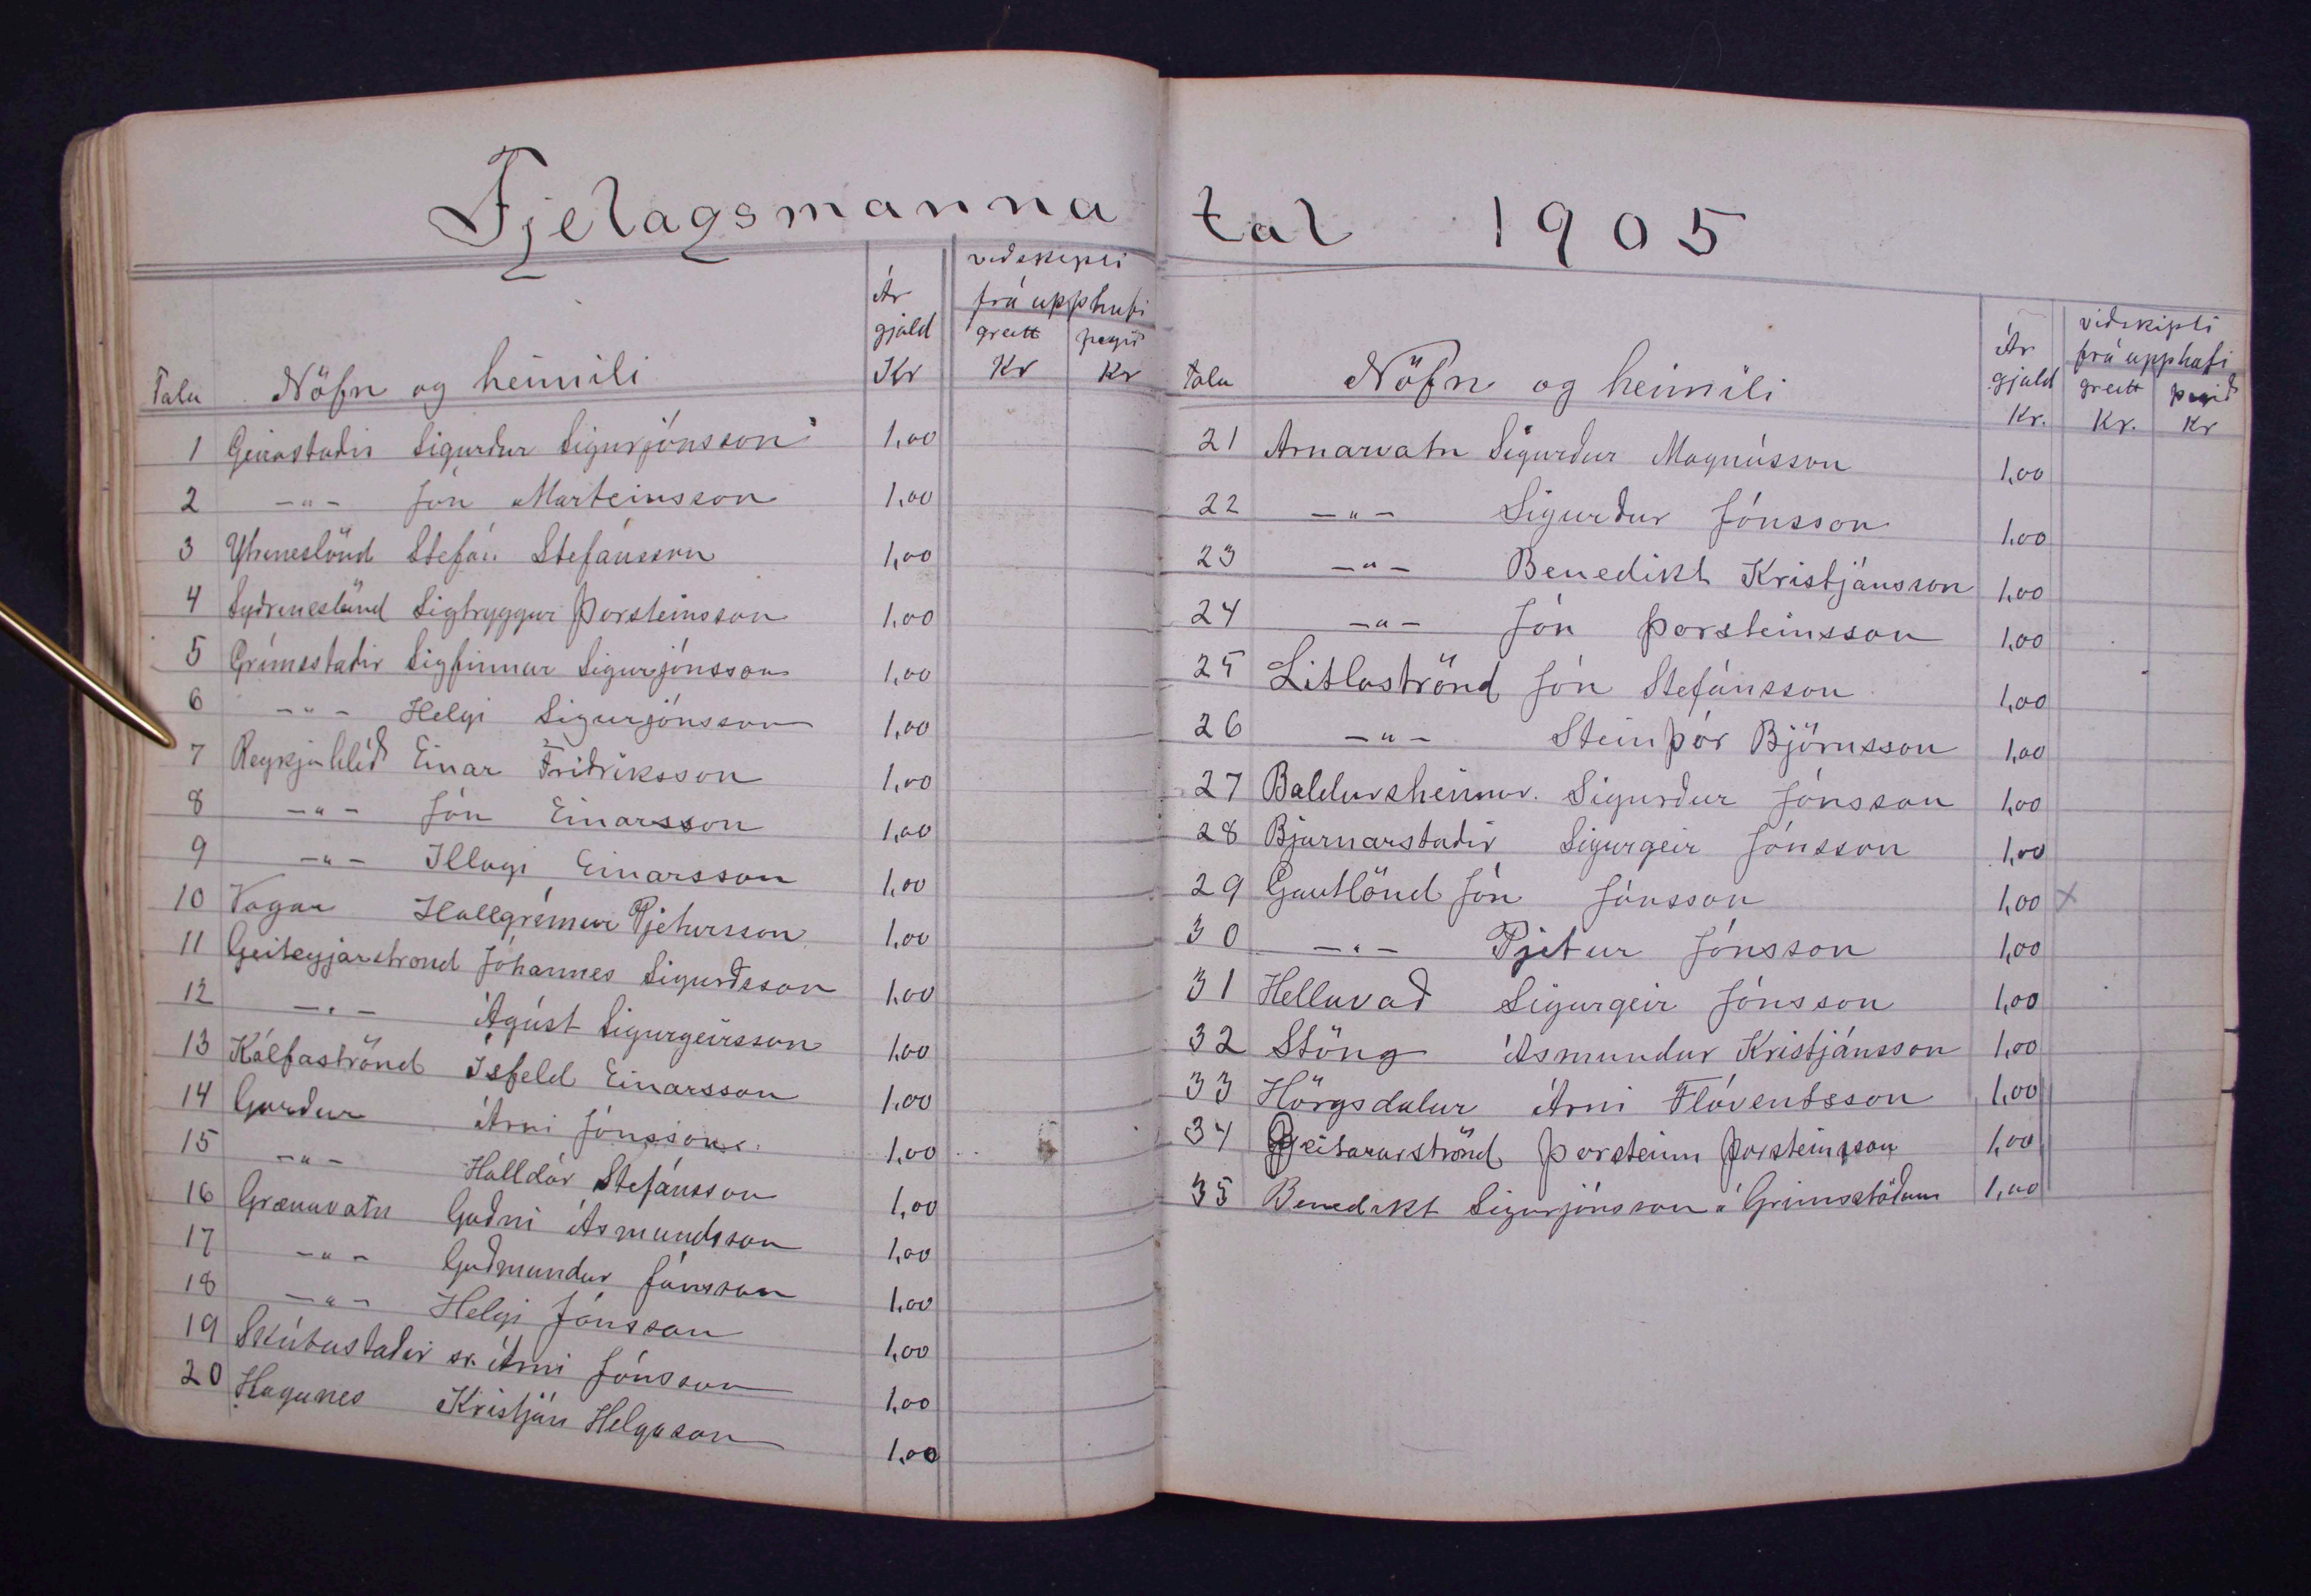 Fjelagsmanna tal 1905
Tala Nöfn og heimili Ár gjald Kr viðskipti frá upphafi greitt Kr þegið Kr
1 Geirastaðir Sigurður Sigurjónsson 1,00
2 -"- Jón Marteinsson 1,00
3 Ytrineslönd Stefán Stefánsson 1,00
4 Syðrineslönd Sigtryggur Þorsteinsson 1,00
5 Grímsstaðir Sigfinnur Sigurjónsson 1,00
6 -"- Helgi Sigurjónsson 1,00
7 Reykjahlíð Einar Friðriksson 1,00
8 -"- Jón Einarsson 1,00
9 -"- Illugi Einarsson 1,00
10 Vogar Hallgrímur Pjetursson 1,00
11 Geiteyjarströnd Jóhannes Sigurðsson 1,00
12 -"- Ágúst Sigurgeirsson 1,00
13 Kálfaströnd Ísfeld Einarsson 1,00
14 Garður Árni Jónsson 1,00
15 -"- Halldór Stefánsson 1,00
16 Grænavatn Guðni Ásmundsson 1,00
17 -"- Guðmundur Jónsson 1,00
18 -"- Helgi Jónsson 1,00
19 Skútustaðir sr. Árni Jónsson 1,00
20 Haganes Kristján Helgason 1,00
tala Nöfn og heimili Ár gjald Kr. viðskipti frá upphafi greitt Kr. þegið Kr
21 Arnarvatn Sigurður Magnússon 1,00
22 -"- Sigurður Jónsson 1,00
23 -"- Benedikt Kristjánsson 1,00
24 -"- Jón Þorsteinsson 1,00
25 Litlaströnd Jón Stefánsson 1,00
26 -"- Steinþór Björnsson 1,00
27 Baldursheimur. Sigurður Jónsson 1,00
28 Bjarnarstaðir Sigurgeir Jónsson 1,00
29 Gautlönd Jón Jónsson 1,00 x
30 -"- Pjetur Jónsson 1,00
31 Helluvað Sigurgeir Jónsson 1,00
32 Stöng Ásmundur Kristjánsson 1,00
33 Hörgsdalur Árni Flóventsson 1,00
34 Þorsteinn Þorsteinsson 1,00
35 Benedikt Sigurjónsson á Grímsstöðum 1,00